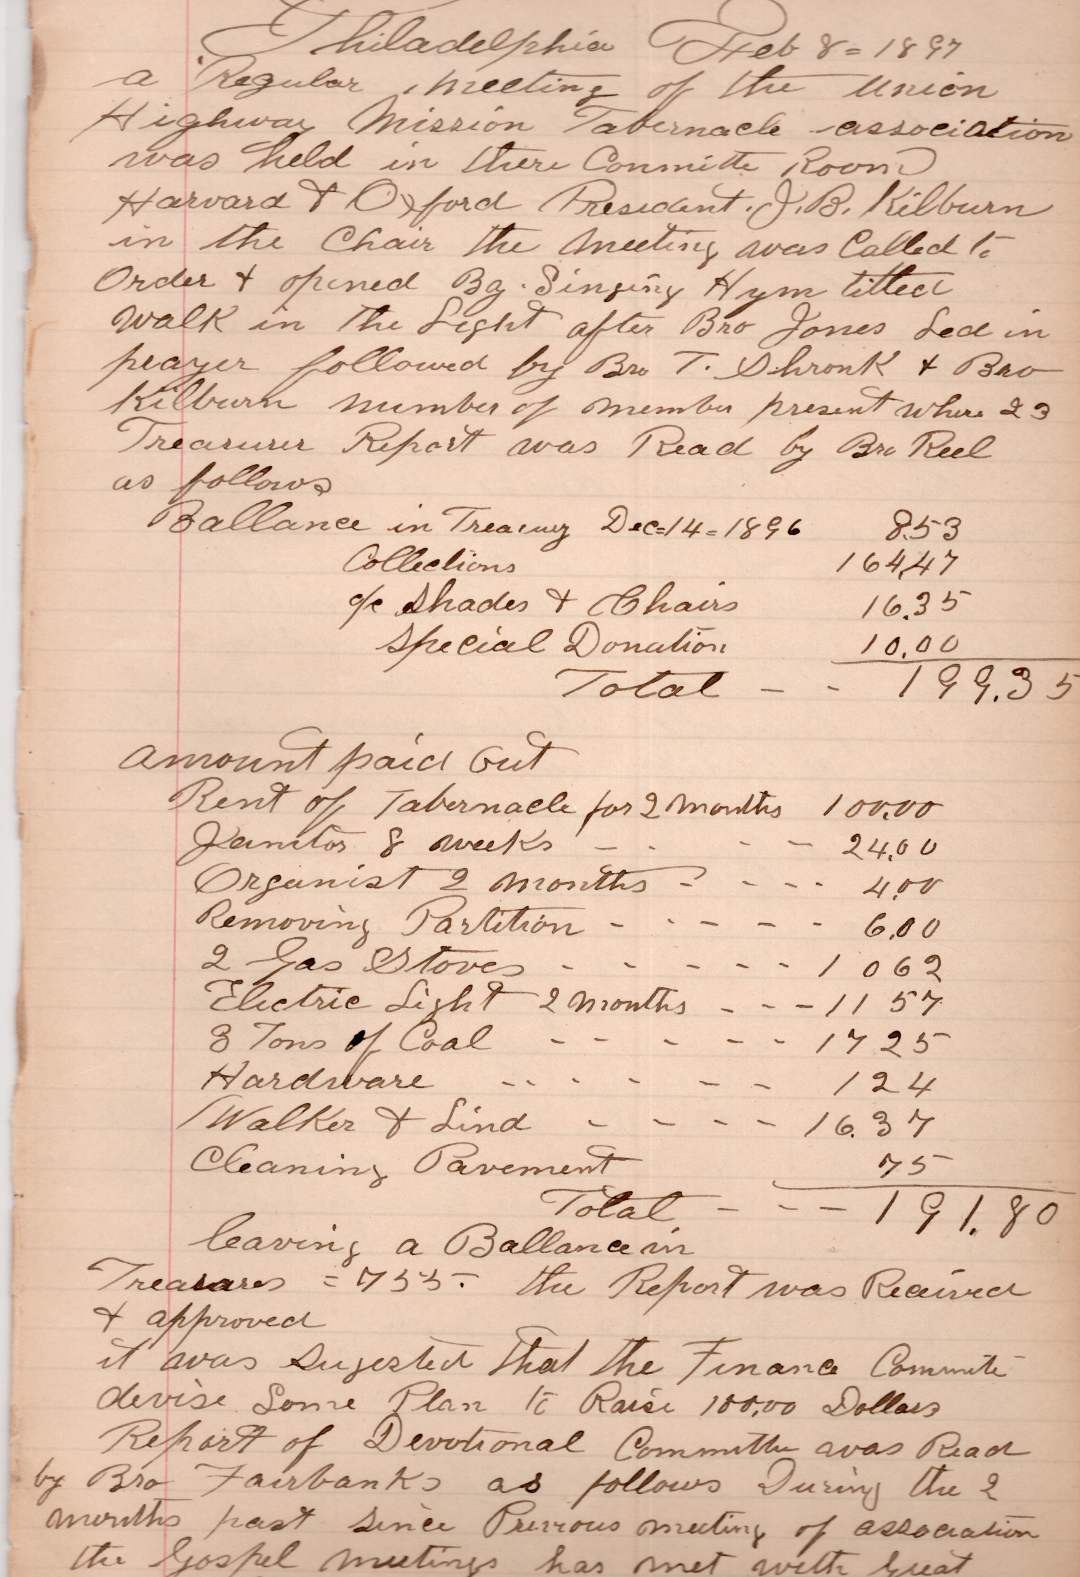 Philadelphia Feb 8 = 1897
a Regular meeting of the Union
Highway Mission Tabernacle association
was held in there Committe Room
Harvard & Oxford President. J. B. Kilburn
in the Chair the meeting was Called to
Order & opened By. Singing Hym titled
Walk in the Light after Bro Jones Led in
prayer followed by Bro T. Shronk & Bro
Kilburn number of member present where 23
Treasurer Report was Read by Bro Reel
as follows
Ballance in Treasury Dec=14=1896 8.53
Collections 164,47
o/c Shades & Chairs 16.35
Special Donation 10.00
Total - - 199.35
amount paid Out
Rent of Tabernacle for 2 Months 100.00
Janitor 8 weeks - - - - 24.00
Organist 2 months - - - - 4.00
Removing Partition - - - - - 6.00
2 Gas Stoves - - - - - - 10 62
Electric Light 2 Months - - - 11 57
3 Tons of Coal - - - - - - 17 25
Hardware - - - - - - 1 24
Walker & Lind - - - - - 16.37
Cleaning Pavement 75
Total - - - - 191.80
leaving a Ballance in
Treasures = 7 55. the Report was Recived
& approved
it was Sugested that the Finance Committe
devise Some Plan to Raise 100.00 Dollars
Report of Devotional Committe was Read
by Bro Fairbanks as follows During the 2
months past since Previous meeting of association
the Gospel meetings has met with Great